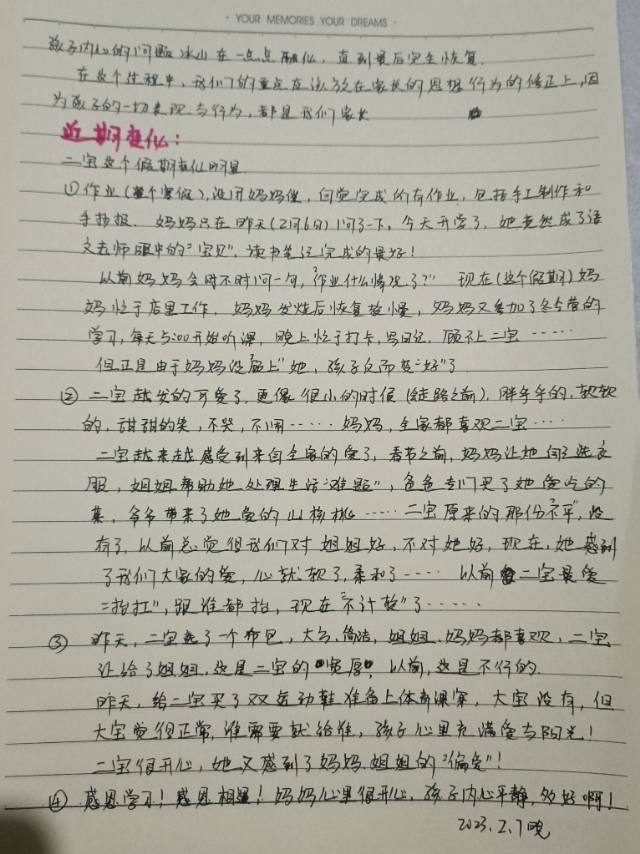 · YOUR MEMORIES YOUR DREAMS ·
孩子内心的问题冰山在一点点融化，直到最后完全恢复.
在这个过程中，我们的重点应该放在家长的思想行为的修正上，因
为孩子的一切表现与行为，都是我们家长
近期变化：
二宝这个假期变化明显.
①作业（整个寒假），没用妈妈催，自觉完成所有作业，包括手工制作和
手抄报. 妈妈只在昨天（2月6日）问了一下，今天开学了，她竟然成了语
文老师眼中的"宝贝"，读书笔记完成的最好！
以前妈妈会时不时问一句，"作业什么情况了？" 现在（这个假期）妈
妈忙于店里工作，妈妈发烧后恢复较慢，妈妈又参加了冬令营的
学习，每天5:00开始听课，晚上忙于打卡，写日记，顾不上二宝……
但正是由于妈妈没"顾上"她，孩子反而变"好"了.
②二宝越发的可爱了，更像很小的时候（走路之前），胖乎乎的，软软
的，甜甜的笑，不哭，不闹……妈妈，全家都喜欢二宝……
二宝越来越感受到来自全家的爱了，春节之前，妈妈让她自己选衣
服，姐姐帮助她处理生活"难题"，爸爸专门买了她爱吃的
菜，爷爷带来了她爱的山核桃……二宝原来的那份"不平"，没
有了，以前总觉得我们对姐姐好，不对她好，现在，她感到
了我们大家的爱，心就软了，柔和了…… 以前二宝最爱
"抬扛"，跟谁都抬，现在"不计较"了……
③昨天，二宝选了一个布包，大气，简洁，姐姐、妈妈都喜欢，二宝
让给了姐姐，这是二宝的"宽厚"，以前，这是不行的.
昨天，给二宝买了双运动鞋准备上体育课穿，大宝没有，但
大宝觉得正常，谁需要就给谁，孩子心里充满爱与阳光！
二宝很开心，她又感到了妈妈、姐姐的"偏爱"！
④感恩学习！感恩相遇！妈妈心里很开心，孩子内心平静，多好啊！
2023.2.7晚